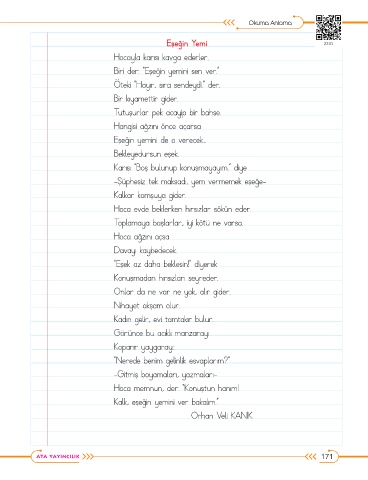 Okuma Anlama
2331
Eşeğin Yemi
Hocayla karısı kavga ederler.
Biri der: "Eşeğin yemini sen ver."
Öteki "Hayır, sıra sendeydi." der.
Bir kıyamettir gider.
Tutuşurlar pek acayip bir bahse.
Hangisi ağzını önce açarsa
Eşeğin yemini de o verecek...
Bekleyedursun eşek.
Karısı "Boş bulunup konuşmayayım." diye
-Şüphesiz tek maksadı, yem vermemek eşeğe-
Kalkar komşuya gider.
Hoca evde beklerken hırsızlar sökün eder.
Toplamaya başlarlar, iyi kötü ne varsa.
Hoca ağzını açsa
Davayı kaybedecek.
"Eşek az daha beklesin!" diyerek
Konuşmadan hırsızları seyreder.
Onlar da ne var ne yok, alır gider.
Nihayet akşam olur.
Kadın gelir, evi tamtakır bulur.
Görünce bu acıklı manzarayı
Koparır yaygarayı:
"Nerede benim gelinlik esvaplarım?"
-Gitmiş boyamaları, yazmaları-
Hoca memnun, der: "Konuştun hanım!
Kalk, eşeğin yemini ver bakalım."
Orhan Veli KANIK
ATA YAYINCILIK
171